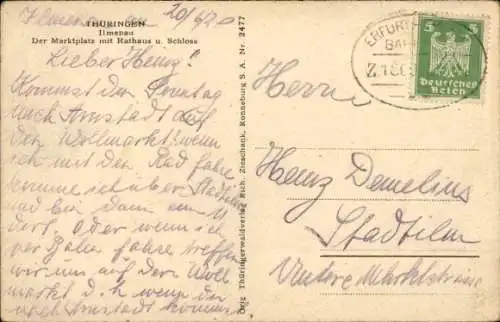 THÜRINGEN
Ilmenau
Der Marktplatz mit Rathaus u. Schloss
Ilmenau 20/6/2
Lieber Heinz!
Kommst du Sonntag
nach Arnstadt auf
den Wollmarkt? wenn
ich mit dem Rad fahre
komme ich über Stadtilm
und bin dann um 11
dort. Oder wenn ich
per Bahn fahre treffen
wir uns auf dem Woll
markt d. h. wenn du
nach Arnstadt kommst
Orig. Thüringerwaldverlag Rich. Zieschack, Ronneburg S. A. Nr. 2477
ERFURT
BA
Z.1
5 5
Deutsches
Reich
Herrn
Heinz Demelius
Stadtilm
Untere Marktstrasse